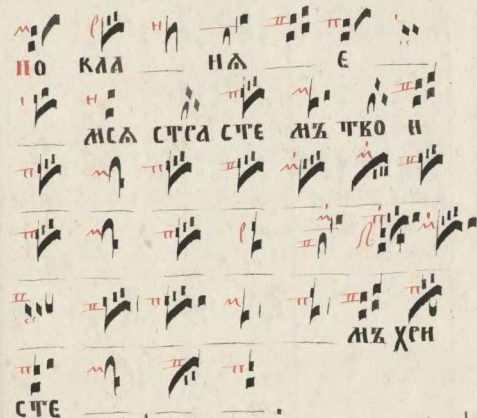 ПО КЛА НѦ Е
МСѦ СТРА СТЕ МЪ ТВО И
МЪ ХРИ
СТЕ